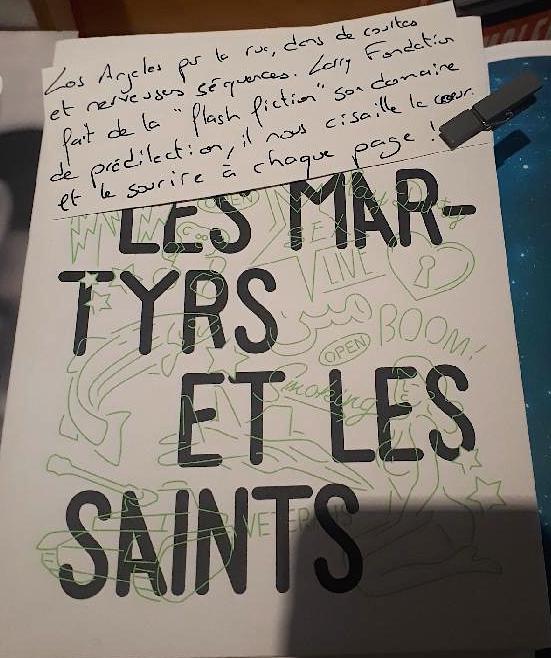 Los Angeles par la rue, dans de courtes
et nerveuses séquences. Larry Fondation
fait de la "flash fiction" son domaine
de prédilection, il nous cisaille le coeur
et le sourire à chaque page !
OPEN
LES MAR-
SEX
LIVE
TYRS
BOOM!
OPEN
Smoking
ET LES
SAINTS